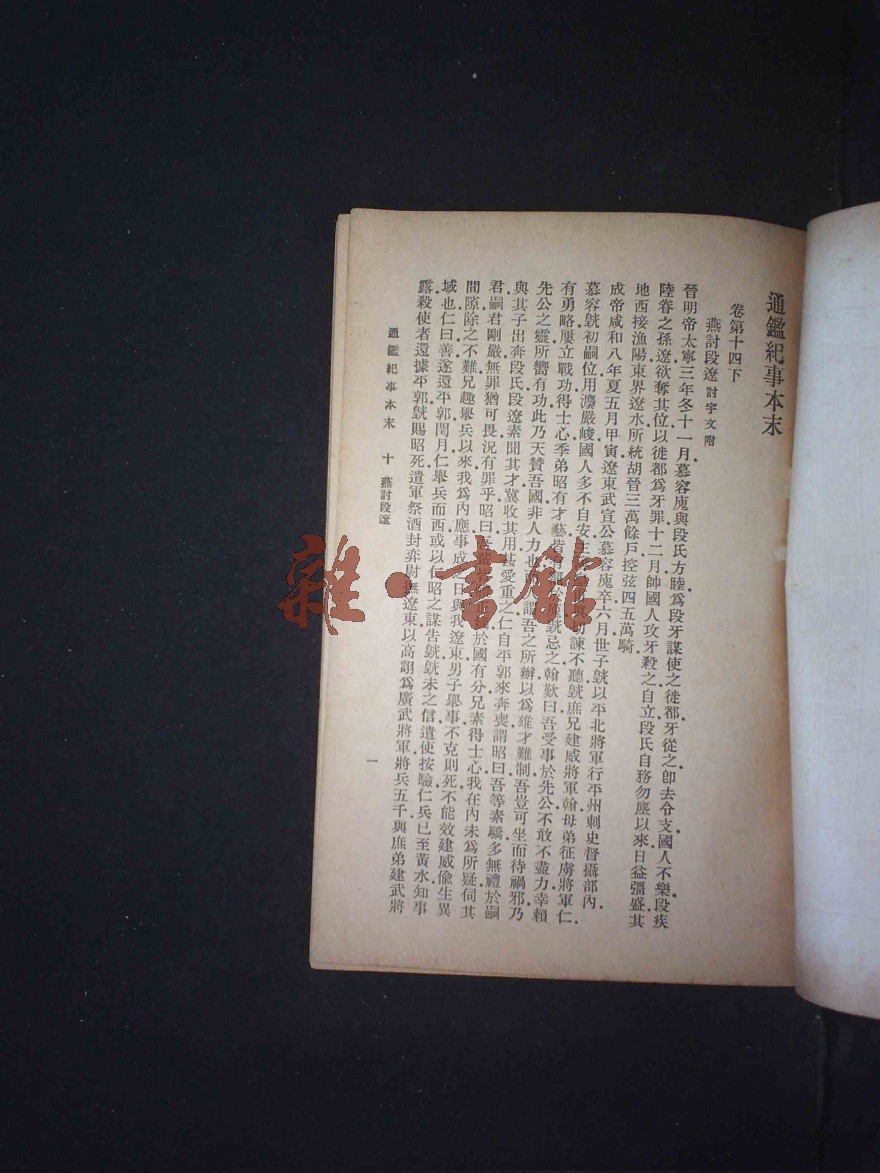 通鑑紀事本末
卷第十四下
燕討段遼 討宇文附
晉明帝太寧三年冬十一月慕容廆與段氏方睦爲段牙謀使之徙都牙從之卽去令支國人不樂段疾
陸眷之孫遼欲奪其位以徙都爲牙罪十二月帥國人攻牙殺之自立段氏自務勿塵以來日益彊盛其
地西接漁陽東界遼水所統胡晉三萬餘戶控弦四五萬騎
成帝咸和八年夏五月甲寅遼東武宣公慕容廆卒六月世子皝以平北將軍行平州刺史督攝部內
慕容皝初嗣位用灋嚴峻國人多不自安切諫不聽皝庶兄建威將軍翰母弟征虜將軍仁
有勇略屢立戰功得士心季弟昭有才藝皆有寵於廆皝忌之翰歎曰吾受事於先公不敢不盡力幸賴
先公之靈所嚮有功此乃天贊吾國非人力也謂吾之所辦以爲雄才難制吾豈可坐而待禍邪乃
與其子出奔段氏段遼素聞其才冀收其用甚愛重之仁自平郭來奔喪謂昭曰吾等素驕多無禮於嗣
君嗣君剛嚴無罪猶可畏況有罪乎昭曰於國有分兄素得士心我在內未爲所疑伺其
間隙除之不難兄趣舉兵以來我爲內應事成之日與我遼東男子舉事不克則死不能效建威偸生異
域也仁曰善遂還平郭閏月仁舉兵而西或以仁昭之謀告皝皝未之信遣使按驗仁兵已至黃水知事
露殺使者還據平郭皝賜昭死遣軍祭酒封弈慰撫遼東以高詡爲廣武將軍將兵五千與庶弟建武將
通鑑紀事本末 十 燕討段遼
一
雜·書館